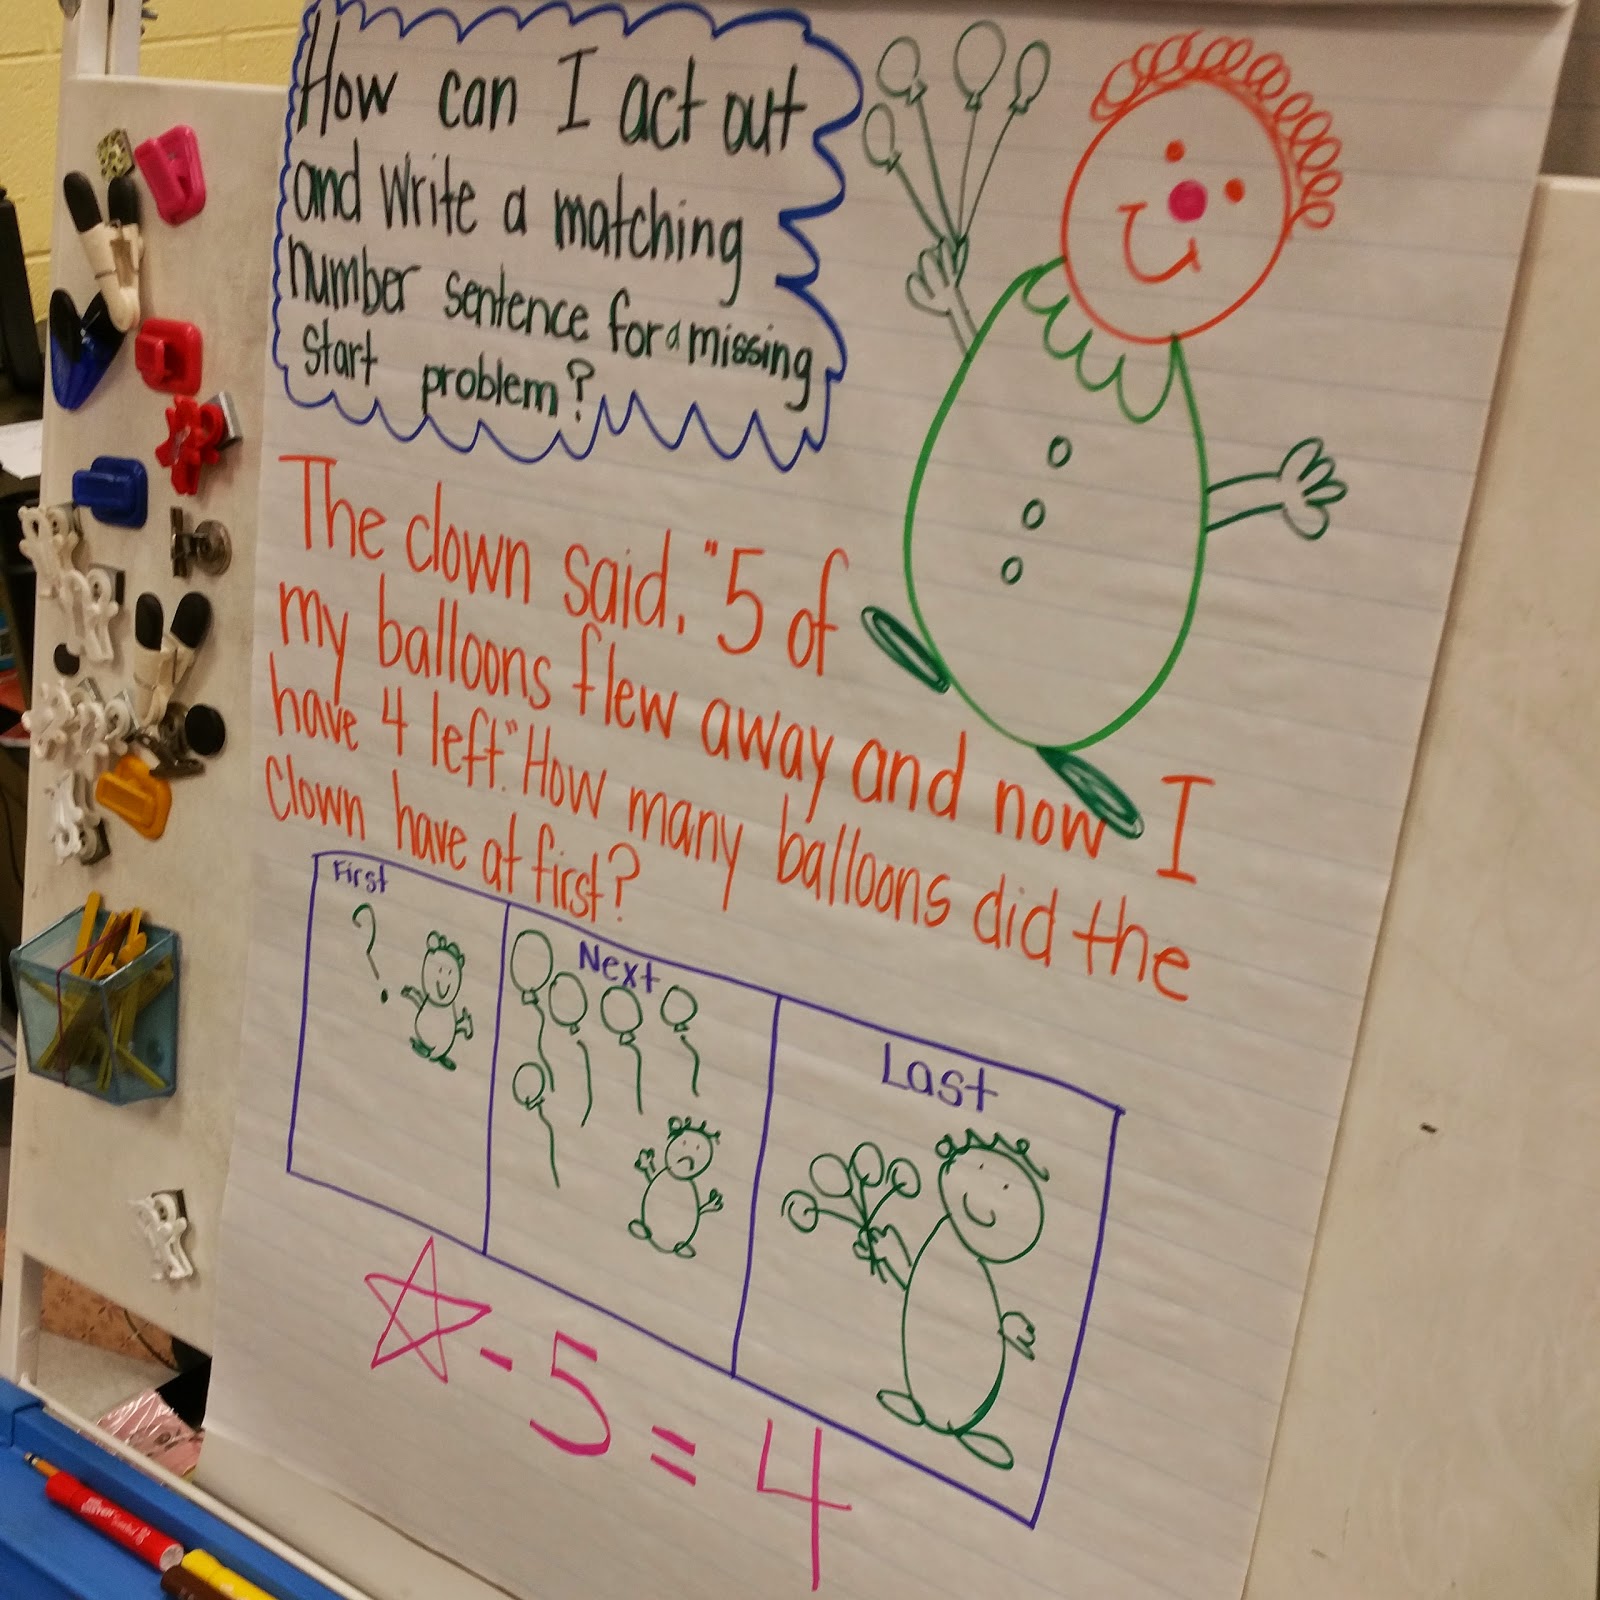 How can I act out
and write a matching
number sentence for a missing
start problem?
The clown said, "5 of
my balloons flew away and now I
have 4 left." How many balloons did the
clown have at first?
First
?
Next
Last
☆ - 5 = 4